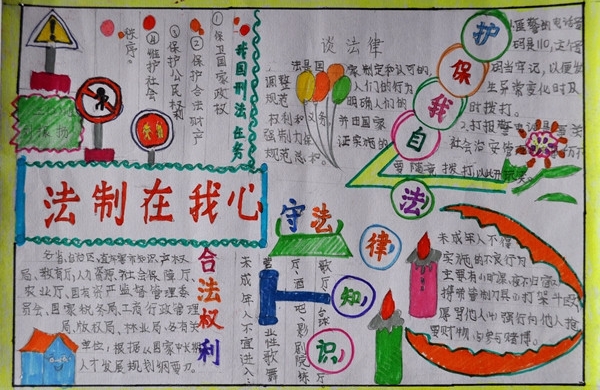 我国刑法任务
① 保卫国家政权
② 保护合法财产
③ 保护公民权利
④ 维护社会
秩序。
谈法律
法是国家制定和认可的,
调整人们的行为
规范,明确人们的
权利和义务
并由国家
强制力保证实施的
规范总和。
护
保
我
自
法
匪警的电话号
码是110,这个号
码当牢记,以便发
生异常变化时及
时拨打。
2.打报警电话事关
社会治安管
要随意拨打
法制在我心
守法
律
知
识
合法权利
各省、自治区、直辖市知识产权
局、教育厅、人力资源社会保障厅、
农业厅、国有资产监督管理委
员会、国家税务局、工商行政管理
局、版权局、林业局、各有关
单位,根据从国家中长期
人才发展规划纲要
未成年人不宜进入
营业性歌舞
厅、酒吧、影剧院
歌厅、台球
厅
未成年人不得
实施的不良行为
主要有:旷课、夜不归宿;
携带管制刀具;打架斗殴
辱骂他人;强行向他人索
要财物;参与赌博。